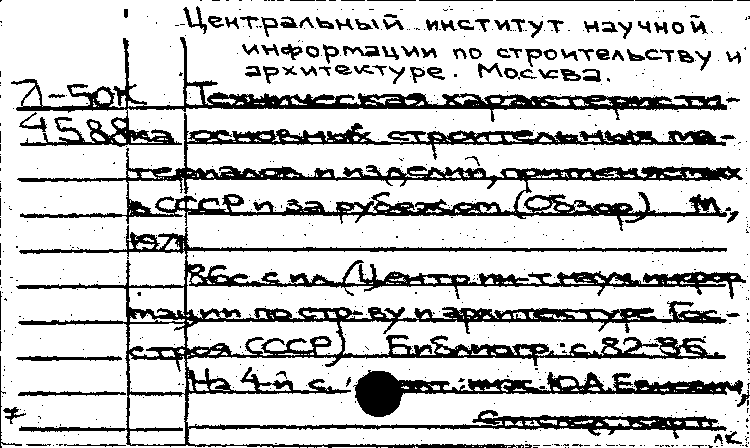 Центральный институт научной
информации по строительству и
архитектуре. Москва.
Л-50к Техническая характеристи-
4588 ка основных строительных ма-
териалов и изделий, применяемых
в СССР и за рубежом (Обзор) М.,
1971
86с. с ил. (Центр. ин-т науч. инфор
мации по стр-ву и архитектуре Гос-
строя СССР) Библиогр.: с. 82-86.
На 4-й с. авт.: инж. Ю.А.
См. след. карт.